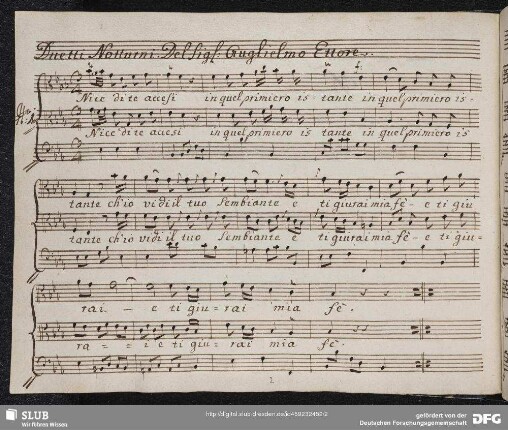 Duetti Notturni. Del Sigr. Guglielmo Ettore.
Nice di te accesi in quel primiero is- tante in quel primiero is-
Nice di te accesi in quel primiero is tante in quel primiero is
tante ch'io vidi il tuo Sembiante e ti giurai mia fè - e ti giu
tante ch'io vidi il tuo Sembiante e ti giurai mia fè - e ti giu=
rai. - e ti giu= rai mia fè.
ra = = i e ti giu= rai mia fè.
1
SLUB
Wir führen Wissen.
gefördert von der
Deutschen Forschungsgemeinschaft
DFG